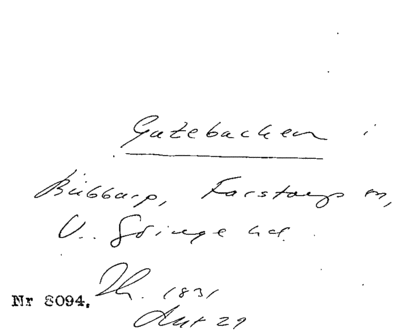 Gatebacken i
Bubbarp, Farstorps sn,
V. Göinge hd.
Nr 8094. Th. 1831
Ant 29